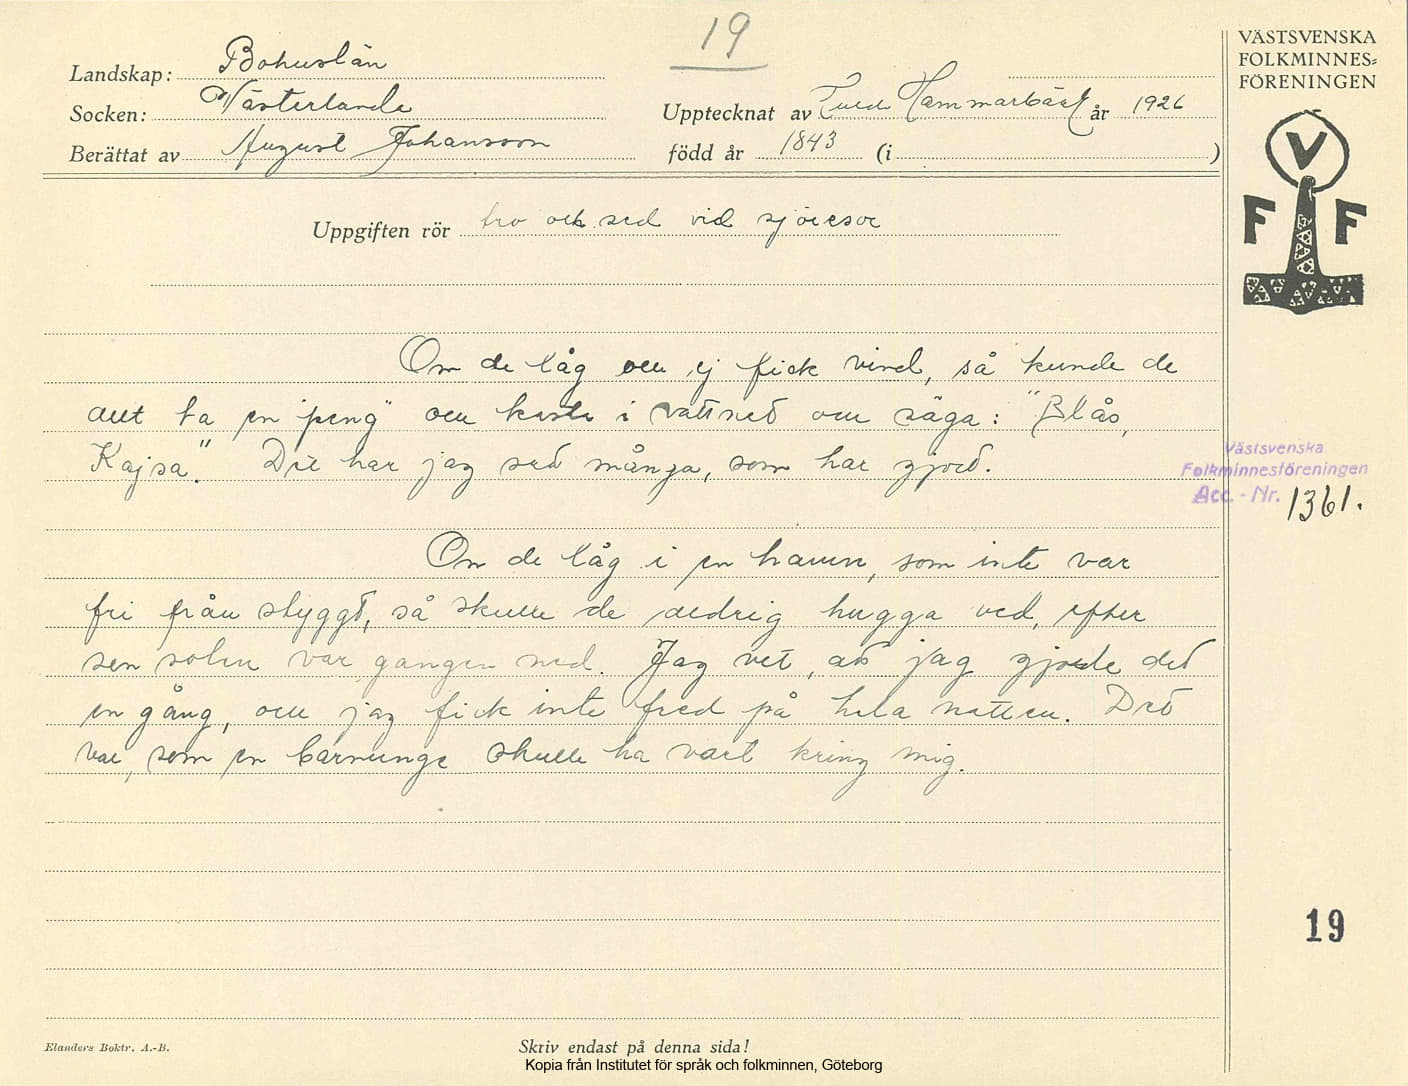 19
VÄSTSVENSKA
FOLKMINNES=
FÖRENINGEN
Landskap: Bohuslän
Socken: Västerlanda
Upptecknat av Hammarbäck år 1926
Berättat av August Johansson
född år 1843 (i )
V
F F
Uppgiften rör tro och sed vid sjöresor
Om de låg och ej fick vind, så kunde de
allt ta en "peng" och kasta i vattnet och säga: "Blås,
Kajsa." Det har jag sett många, som har gjord.
Västsvenska
Folkminnesföreningen
Acc.-Nr. 1361.
Om de låg i en hamn, som inte var
fri från styggt, så skulle de aldrig hugga ved, efter
sen solen var gangen ned. Jag vet, att jag gjorde det
en gång, och jag fick inte fred på hela natten. Det
var, som en barnunge skulle ha vart kring mig.
19
Elanders Boktr. A.-B.
Skriv endast på denna sida!
Kopia från Institutet för språk och folkminnen, Göteborg